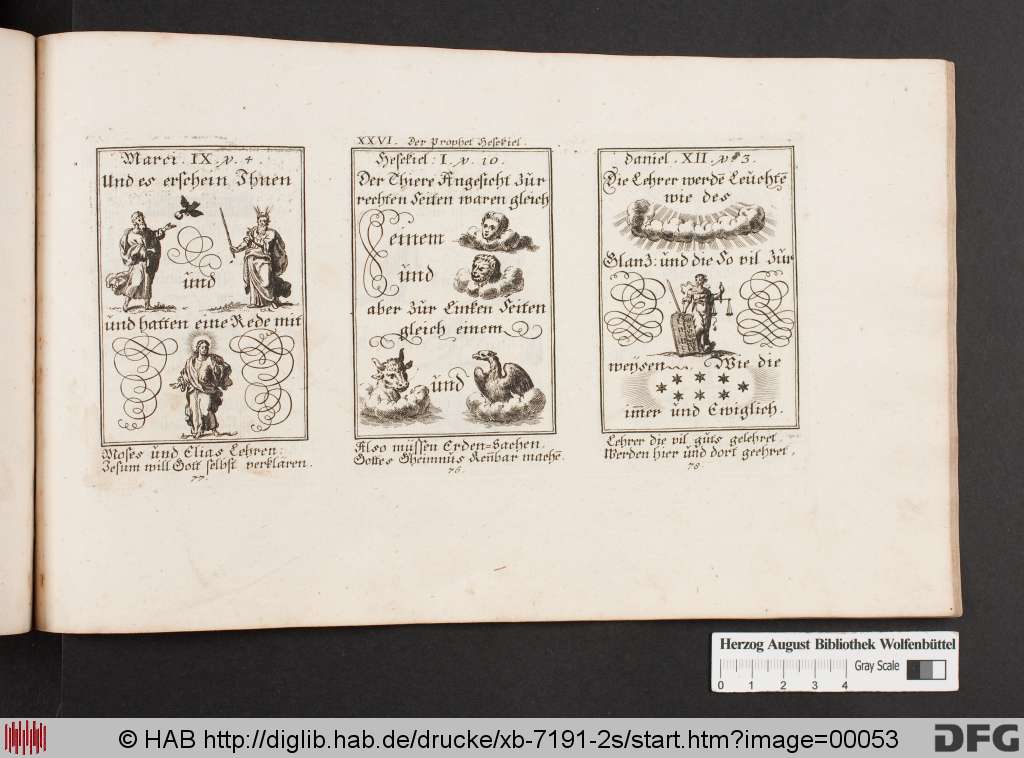 Marci. IX. v. 4.
Und es erschein Ihnen
und
und hatten eine Rede mit
Moses und Elias Lehren:
Jesum will Gott selbst verklaren.
77.
XXVI. Der Prophet Hesekiel.
Hesekiel: I. v. 10.
Der Thiere Angesicht zür
rechten Seiten waren gleich
einem
ünd
aber zür Lincken Seiten
gleich einem
ünd
Also müssen Erden=Sachen.
Gottes Gheimnüs Keñbar machē.
76.
Daniel. XII. v. 3.
Die Lehrer werdē Leüchtē
wie des
Glanz: und die So vil zür
weÿsen Wie die
im̄er und Ewiglich.
Lehrer die vil güts gelehret.
Werden hier ünd dort geehret.
78.
Herzog August Bibliothek Wolfenbüttel
Gray Scale
0 1 2 3 4
© HAB http://diglib.hab.de/drucke/xb-7191-2s/start.htm?image=00053
DFG